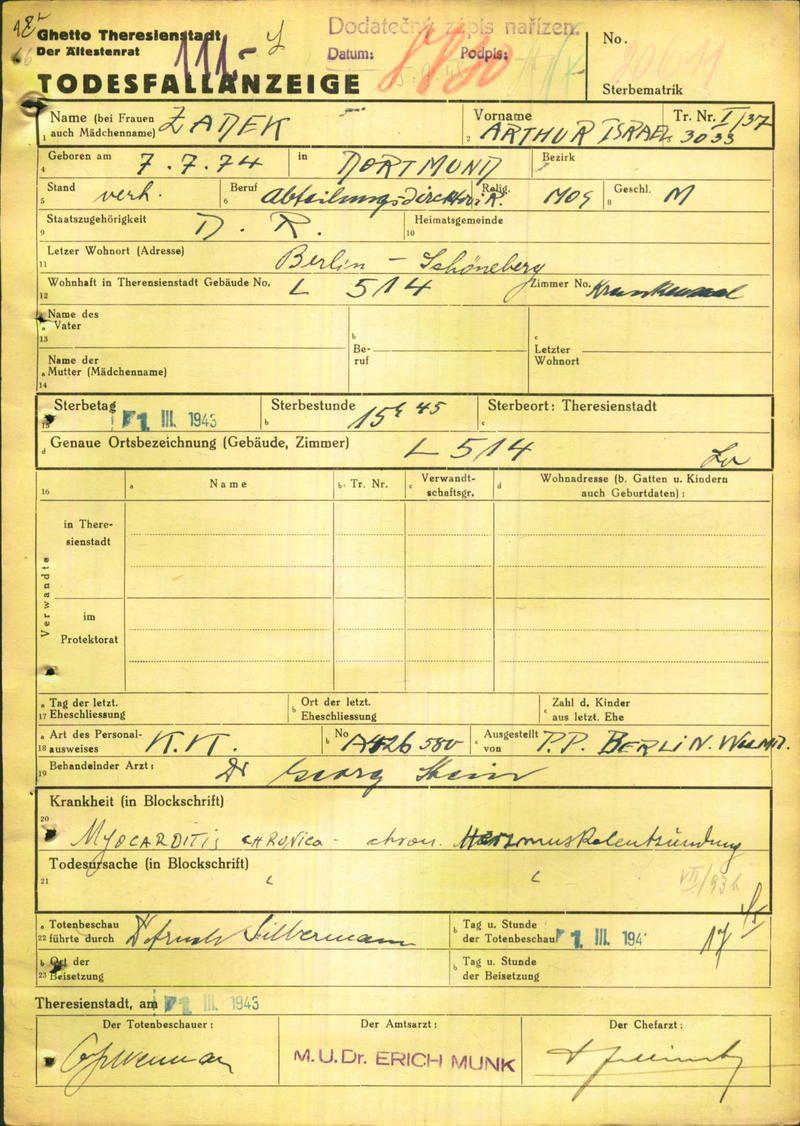 Ghetto Theresienstadt
Der Ältestenrat
111.-
Dodatečný zápis nařízen.
Datum: Podpis:
No.
TODESFALLANZEIGE
Sterbematrik
Name (bei Frauen auch Mädchenname) ZADEK
1
Vorname ARTHUR ISRAEL
2
Tr. Nr. I/37 3033
Geboren am 7.7.74 in DORTMUND Bezirk
4
Stand verh. Beruf Abteilungs-Direktor i.R. Relig. MOS Geschl. M
5 6 8
Staatszugehörigkeit D. R. Heimatsgemeinde
9 10
Letzer Wohnort (Adresse) Berlin - Schöneberg
11
Wohnhaft in Theresienstadt Gebäude No. L 514 Zimmer No. Krankensaal
12
Name des
a Vater
13
b Be-
ruf
c Letzter
Wohnort
Name der
a Mutter (Mädchenname)
14
Sterbetag 1 III. 1943 Sterbestunde 15h 45 Sterbeort: Theresienstadt
15 b c
d Genaue Ortsbezeichnung (Gebäude, Zimmer) L 514
16 a Name b Tr. Nr. c Verwandt-
schaftsgr. d Wohnadresse (b. Gatten u. Kindern
auch Geburtdaten):
Verwandte
in There-
sienstadt
im
Protektorat
a Tag der letzt.
17 Eheschliessung
b Ort der letzt.
Eheschliessung
c Zahl d. Kinder
aus letzt. Ehe
a Art des Personal-
18 ausweises K.K. b No A426580 c Ausgestellt
von P.P. BERLIN.
Behandelnder Arzt: Dr Georg Stein
19
Krankheit (in Blockschrift)
20
MYOCARDITIS CHRONICA - chron. Herzmuskelentzündung
Todesursache (in Blockschrift)
21
VII/93b
a Totenbeschau
22 führte durch Silbermann
b Tag u. Stunde
der Totenbeschau 1 III. 194 17
b Ort der
23 Beisetzung
b Tag u. Stunde
der Beisetzung
Theresienstadt, am 1 III. 1943
Der Totenbeschauer: Der Amtsarzt: Der Chefarzt:
M.U.Dr. ERICH MUNK